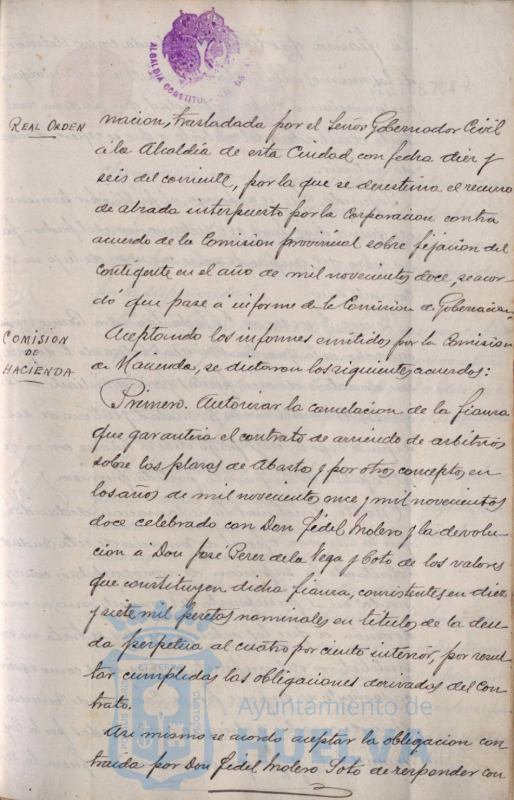 ALCALDIA CONSTITU
REAL ORDEN
nacion, trasladada por el Señor Gobernador Civil
á la Alcaldía de esta Ciudad con fecha diez y
seis del corriente, por la que se desestima el recurso
de alzada interpuerto por la Corporacion contra
acuerdo de la Comision provincial sobre fijacion del
contigente en el año de mil novecientos doce, se acor-
dó que pase á informe de la Comision de Gobernacion.
COMISION
DE
HACIENDA
Aceptando los informes emitidos por la Comision
de Hacienda, se dictaron los siguientes acuerdos:
Primero. Autorizar la cancelacion de la fianza
que garantiza el contrato de arriendo de arbitrios
sobre las plazas de Abasto y por otros conceptos en
los años de mil novecientos once y mil novecientos
doce celebrado con Don Fidel Molero y la devolu-
cion á Don José Perez de la Vega y Coto de los valores
que constituyen dicha fianza, consistentes en diez
y siete mil pesetas nominales en titulos de la deu-
da perpetua al cuatro por ciento interior, por resul-
tar cumplidas las obligaciones derivadas del con-
trato.
Asi mismo se acordo aceptar la obligacion con-
traida por Don Fidel Molero Soto de responder con
Ayuntamiento de
HUELVA